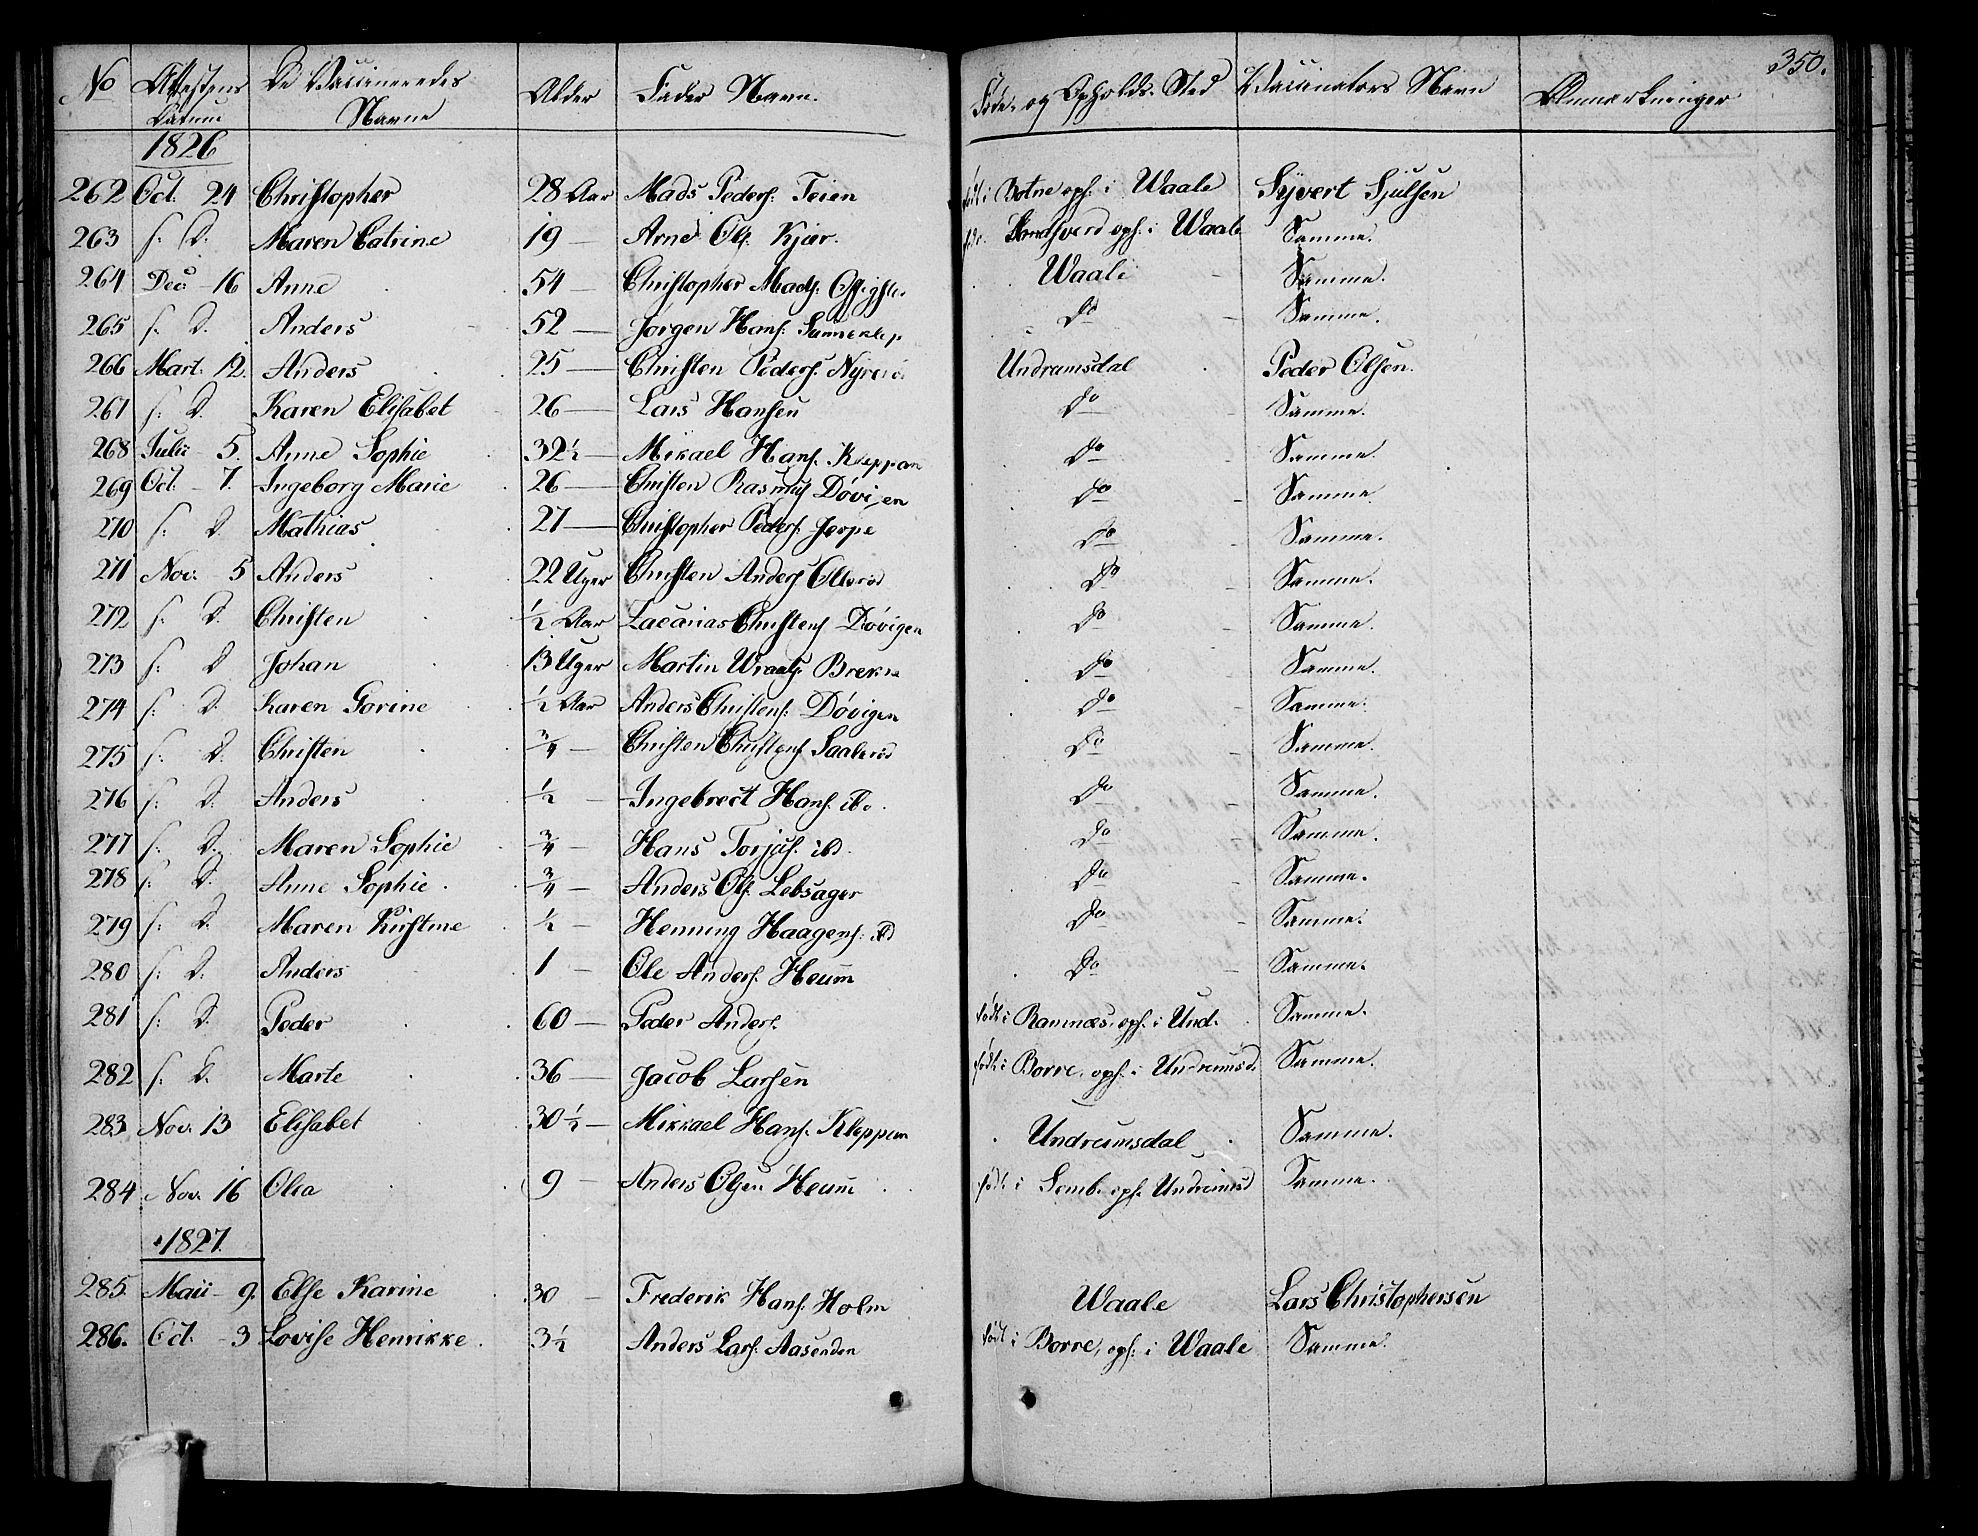 350.
No Attestens Datum De Vaccineredes Navne Alder Fader Navn. Føde- og Opholds-Sted Vaccinators Navn Anmærkninger
1826
262 Oct. 24 Christopher 28 Aar Mads Peders: Teien født i Botne oph. i Waale Syvert Sjulsen
263 s: D. Maren Catrine 19 — Arne Ols. Kjær. oph: i Waale Samme.
264 Dec 16 Anne 54 — Christopher Mads: Waale Samme.
265 s: D. Anders 52 — Jørgen Hans: Do Samme.
266 Mart. 12. Anders 25 — Christen Peders. Undrumsdal Peder Olsen.
267 s: D. Karen Elisabet 26 — Lars Hansen Do Samme.
268 Julii 5. Anne Sophie 32½ — Mikael Hans. Kleppan Do Samme.
269 Oct. 7. Ingeborg Marie 26 — Christen Rasmus Døvigen Do Samme.
270 s: D. Mathias 27 — Christopher Peders. Jerpe Do Samme.
271 Nov. 5 Anders 22 Uger Christen Anders Do Samme.
272 s: D. Christen ½ Aar Zacarias Christens Døvigen Do Samme.
273 s: D Johan 13 Uger Martin Brekke Do Samme.
274 s: D. Karen Gorine ½ Aar Anders Christens: Døvigen Do Samme.
275 s: D. Christen ¾ — Christen Christens Do Samme.
276 s: D. Anders ½ — Ingebrect Hans. ibd. Do Samme.
277 s: D. Maren Sophie ¾ — Hans Torjus. ibd. Do Samme.
278 s: D. Anne Sophie ¾ — Anders Ols. Lebsager Do Samme.
279 s: D. Maren Kirstine ½ — Henning Haagens: ibd Do Samme.
280 s: D. Anders 1 — Ole Anders. Heum Do Samme.
281 s: D. Peder 60 — Peder Anders. født i Ramnæs, oph. i Und. Samme.
282 s: D. Marte 36 — Jacob Larsen født i Borre, oph. i Undrumsd. Samme.
283 Nov. 13 Elisabet 30½ — Mikkael Hans. Kleppan Undrumsdal Samme.
284 Nov. 16 Olea 9 — Anders Olsen Heum født i Semb. oph. Undrumsd Samme.
1827.
285. Maii 9. Else Karine 30 — Frederik Hans. Holm Waale Lars Christophersen
286. Oct. 3 Lovise Henrikke 3½ Anders Lars. Aasenden født i Borre, oph: i Waale Samme.